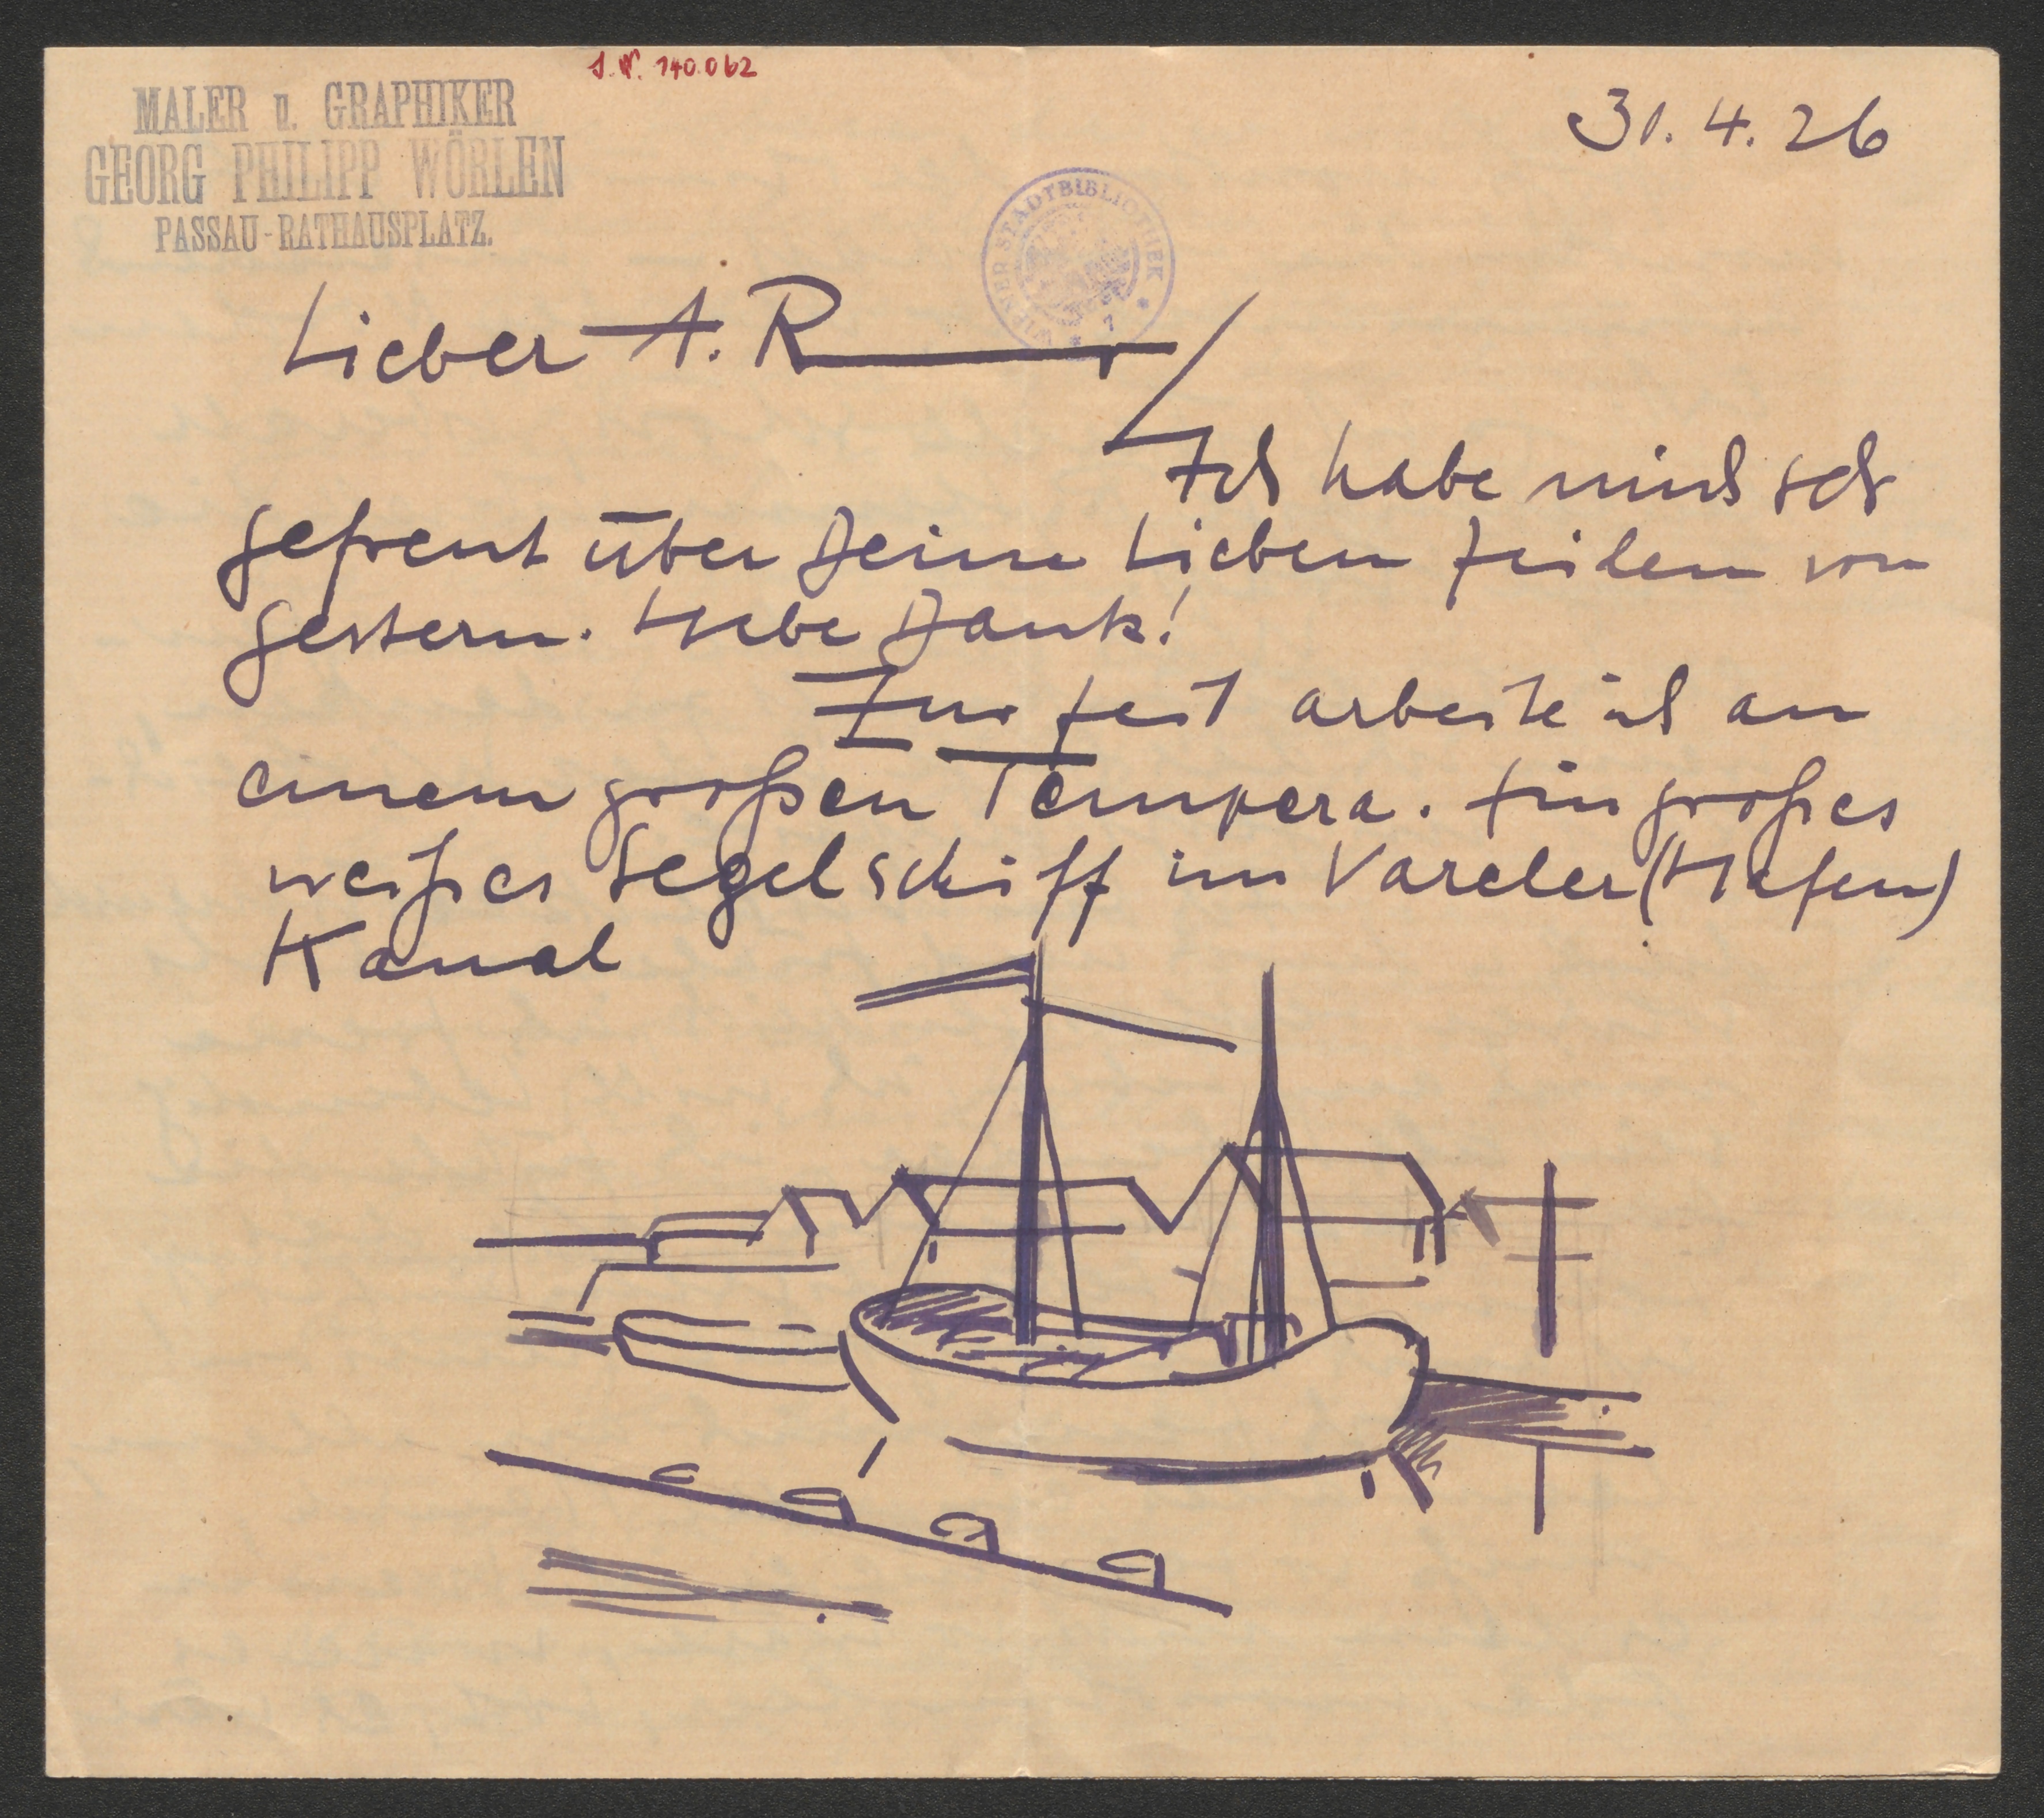 J.N. 140.062
MALER u. GRAPHIKER
GEORG PHILIPP WÖRLEN
PASSAU-RATHAUSPLATZ.
31. 4. 26
WIENER STADTBIBLIOTHEK
Lieber A. R
Ich habe mich sehr
gefreut über Deine Lieben Zeilen von
gestern. Habe Dank!
Zur Zeit arbeite ich an
einem großen Tempera. Ein großes
weißes Segelschiff im Vareler (Hafen)
Kanal